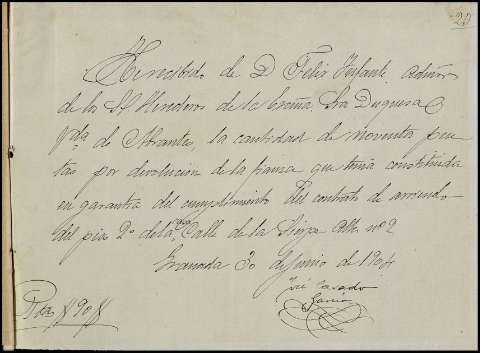 20
He recibido de D. Felix Infante, admor
de los SS Herederos de la Excma. Sra Duquesa
Vda de Abrantes, la cantidad de noventa pese
tas por devolucion de la fianza que tenia constituida
en garantia del cumplimiento del contrato de arriendo
del piso 2º de la Calle de la Sierpe Alta nº 2
Granada 30 de Junio de 1904
José Casado
Garcia
Ptas # 90 #